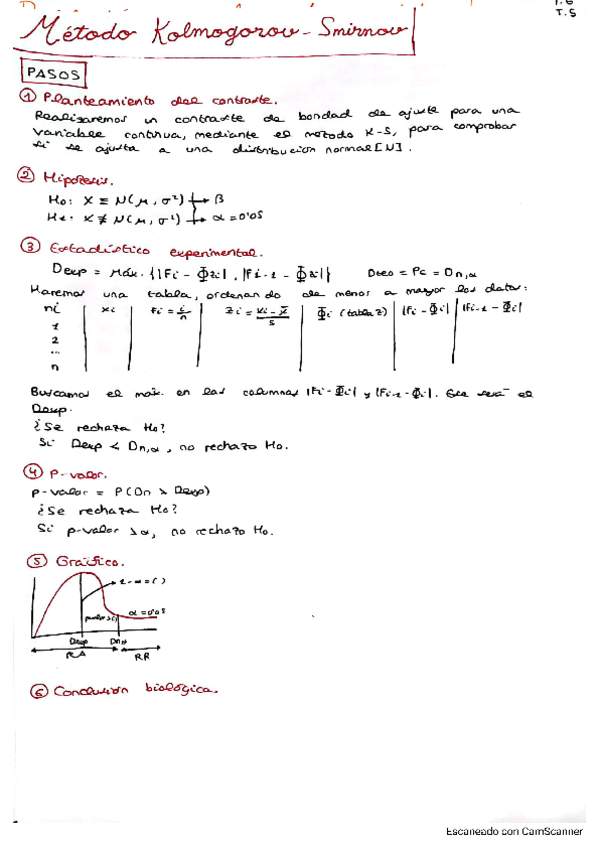 T.6
T.5
Método Kolmogorov - Smirnov
PASOS
① Planteamiento del contraste.
Realizaremos un contraste de bondad de ajuste para una
variable continua, mediante el método K-S, para comprobar
si se ajusta a una distribución normal [N].
② Hipótesis.
H0: X ≡ N(μ, σ²) → β
H1: X ≢ N(μ, σ²) → α = 0'05
③ Estadístico experimental.
Dexp = Máx. {|Fi - Φzi|, |Fi-1 - Φzi|} Dteo = Pc = Dn,α
Haremos una tabla, ordenando de menor a mayor los datos:
ni xi Fi = i/n zi = xi - x̄ / s Φi (tabla z) |Fi - Φi| |Fi-1 - Φi|
1
2
...
n
Buscamos el máx. en las columnas |Fi - Φi| y |Fi-1 - Φi|. Ese será el
Dexp.
¿Se rechaza H0?
Si Dexp < Dn,α, no rechazo H0.
④ P-valor.
p-valor = P(Dn > Dexp)
¿Se rechaza H0?
Si p-valor > α, no rechazo H0.
⑤ Gráfico.
1-α=( )
α=0'05
Dexp Dn,α
RA RR
⑥ Conclusión biológica.
Escaneado con CamScanner